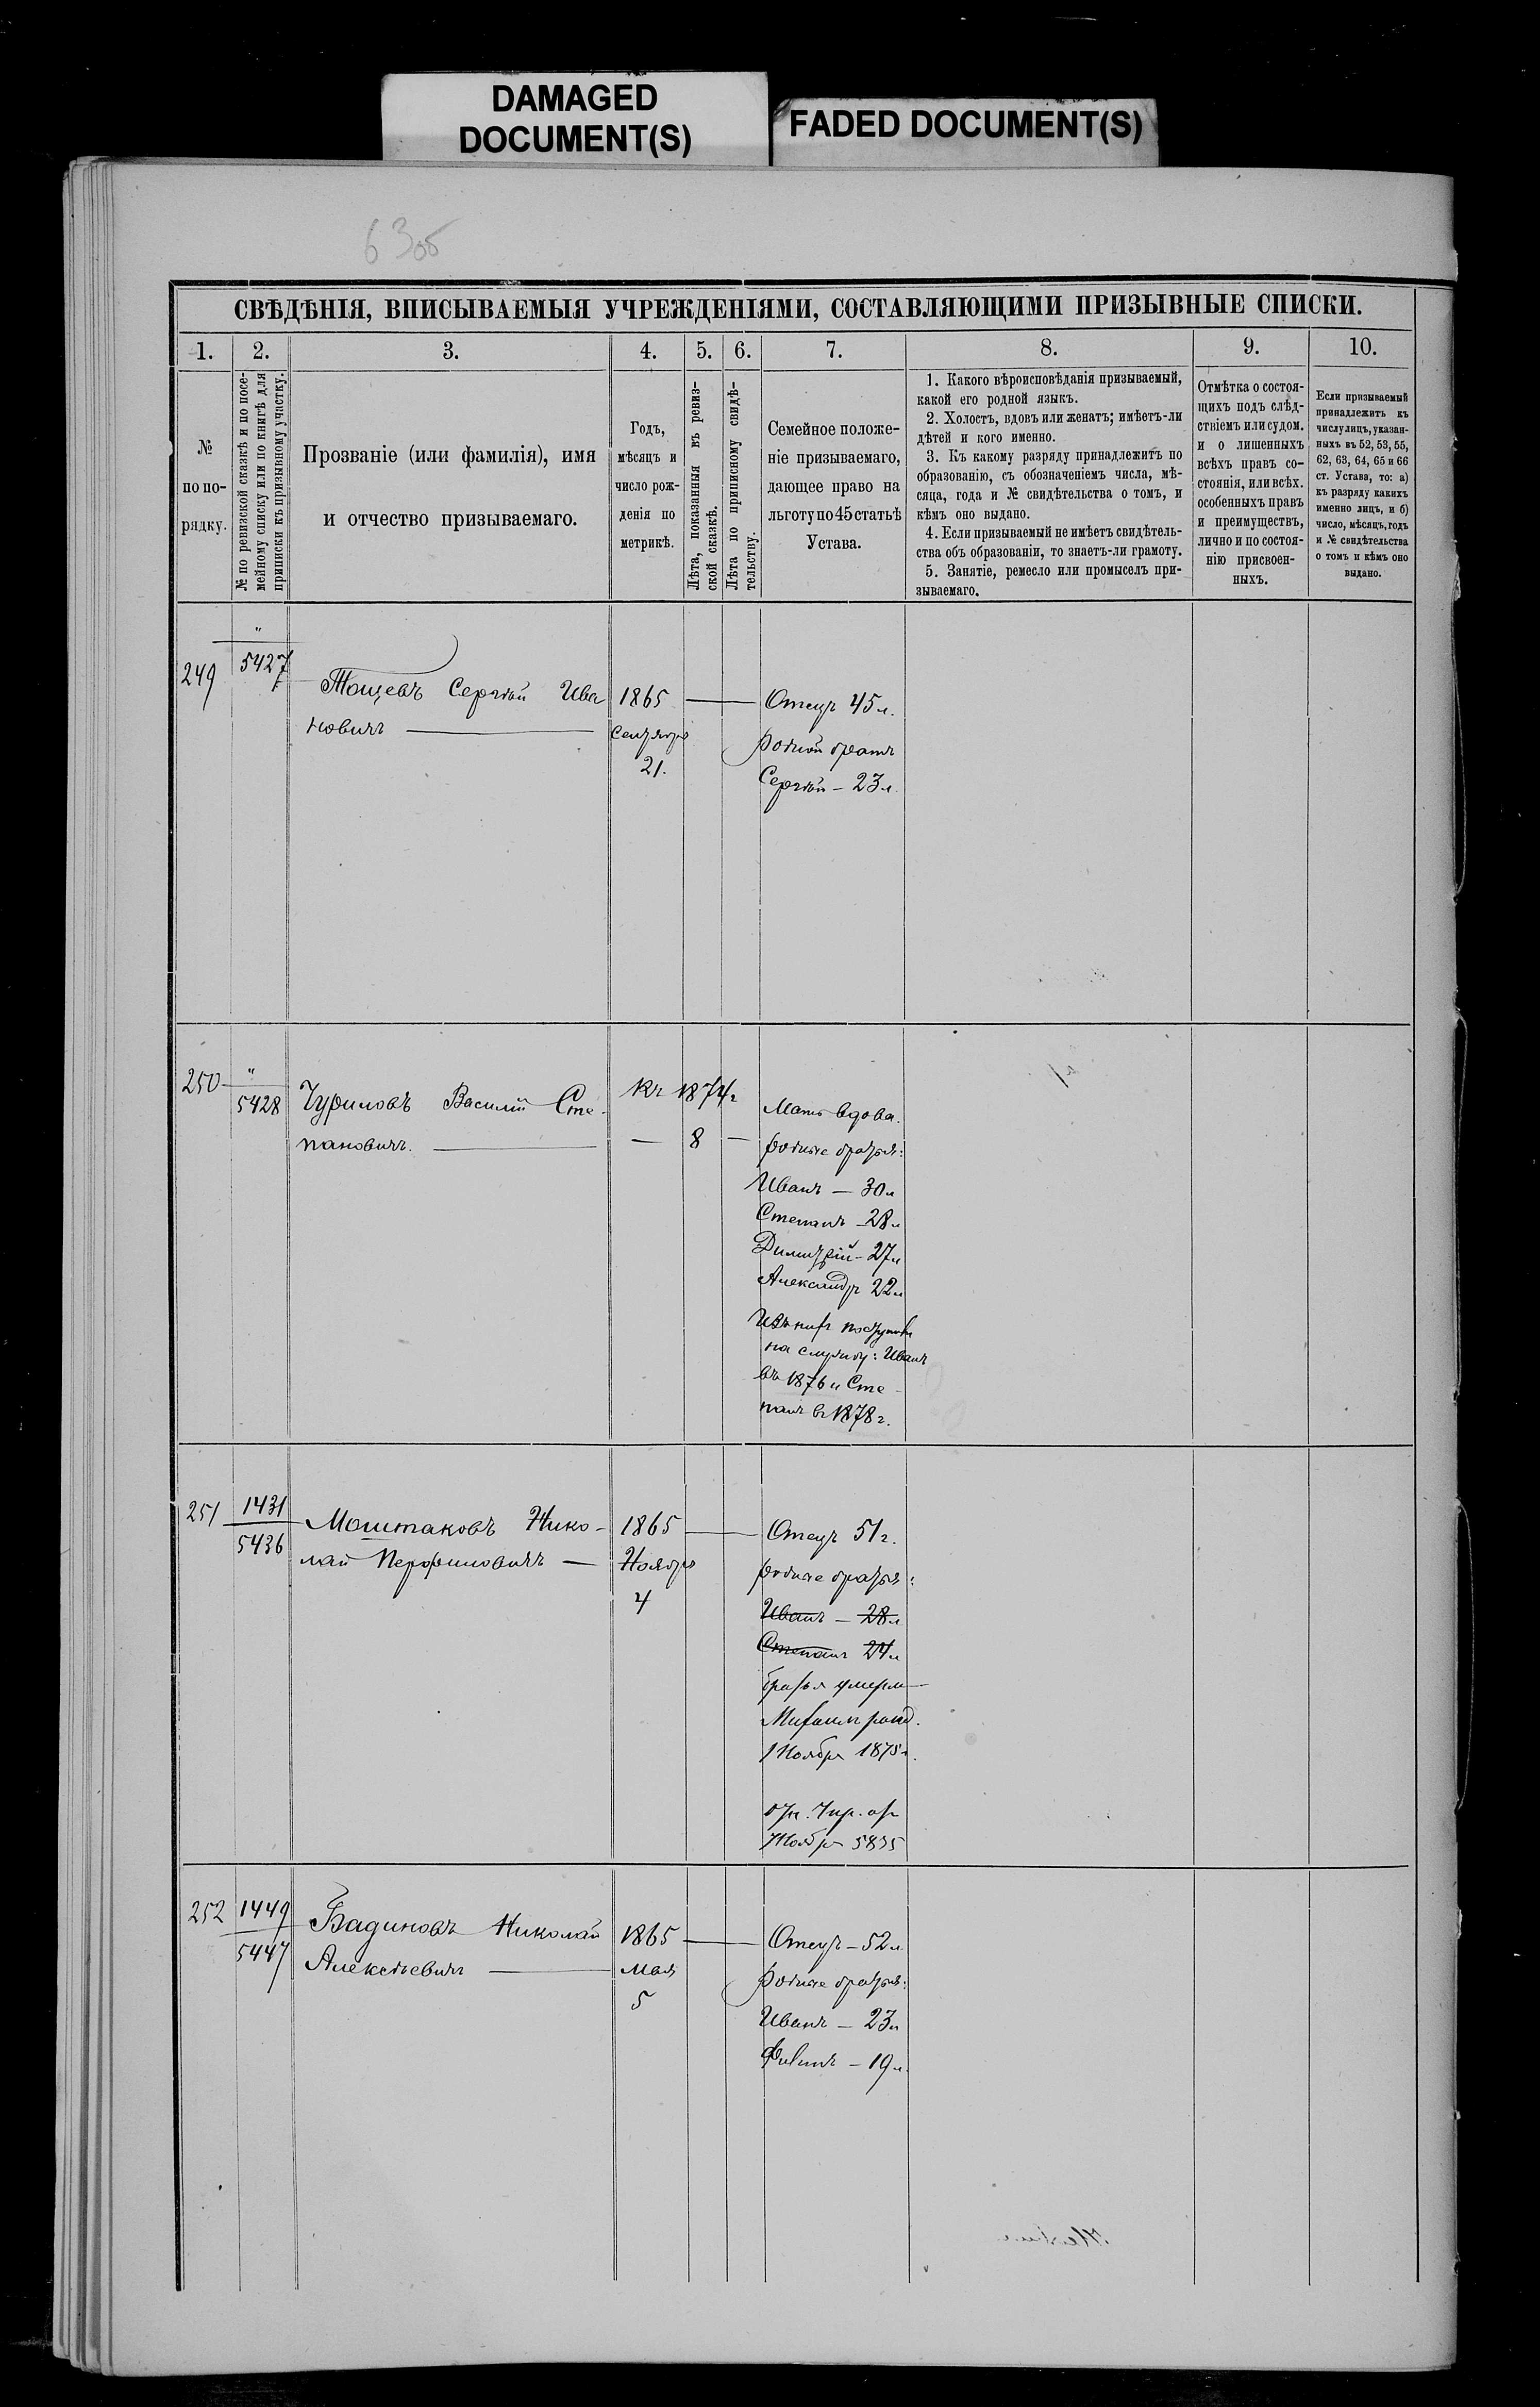 DAMAGED
DOCUMENT(S)
FADED DOCUMENT(S)
63об
СВѢДѢНІЯ, ВПИСЫВАЕМЫЯ УЧРЕЖДЕНІЯМИ, СОСТАВЛЯЮЩИМИ ПРИЗЫВНЫЕ СПИСКИ.
1.
2.
3.
4.
5.
6.
7.
8.
9.
10.
№
по по-
рядку.
№ по ревизской сказкѣ и по посе-
мейному списку или по книгѣ для
приписки къ призывному участку.
Прозваніе (или фамилія), имя
и отчество призываемаго.
Годъ,
мѣсяцъ и
число рож-
денія по
метрикѣ.
Лѣта, показанныя въ ревиз-
ской сказкѣ.
Лѣта по приписному свидѣ-
тельству.
Семейное положе-
ніе призываемаго,
дающее право на
льготу по 45 статьѣ
Устава.
1. Какого вѣроисповѣданія призываемый,
какой его родной языкъ.
2. Холостъ, вдовъ или женатъ; имѣетъ-ли
дѣтей и кого именно.
3. Къ какому разряду принадлежитъ по
образованію, съ обозначеніемъ числа, мѣ-
сяца, года и № свидѣтельства о томъ, и
кѣмъ оно выдано.
4. Если призываемый не имѣетъ свидѣтель-
ства объ образованіи, то знаетъ-ли грамоту.
5. Занятіе, ремесло или промыселъ при-
зываемаго.
Отмѣтка о состоя-
щихъ подъ слѣд-
ствіемъ или судом.
и о лишенныхъ
всѣхъ правъ со-
стоянія, или всѣх.
особенныхъ правъ
и преимуществъ,
лично и по состоя-
нію присвоен-
ныхъ.
Если призываемый
принадлежитъ къ
числу лицъ, указан-
ныхъ въ 52, 53, 55,
62, 63, 64, 65 и 66
ст. Устава, то: а)
къ разряду какихъ
именно лицъ, и б)
число, мѣсяцъ, годъ
и № свидѣтельства
о томъ и кѣмъ оно
выдано.
249
"
5427
Тощевъ Сергѣй Ива
новичъ —
1865
Сентября
21.
Отецъ 45 л.
родной братъ
Сергѣй — 23 л.
250
"
5428
Чуриловъ Василій Сте-
пановичъ. —
Къ 1874 г
— 8 —
Мать вдова.
родные братья:
Иванъ — 30 л
Степанъ — 28 л
Димитрій — 27 л
Александръ 22 л
Изъ нихъ поступили
на службу: Иванъ
въ 1876 и Сте-
панъ въ 1878 г.
251
1431
5436
Моштаковъ Нико-
лай Перфиловичъ —
1865
Ноября
4
Отецъ 51 г.
родные братья:
Иванъ — 28 л
Степанъ 24 л
братья умерли
Михаилъ рожд.
1 Ноября 1875 г.
7 Ноября 5835
252
1449
5447
Бадиновъ Николай
Алексѣевичъ —
1865
Мая
5
Отецъ — 52 л
родные братья:
Иванъ — 23 л
Филипъ — 19 л.